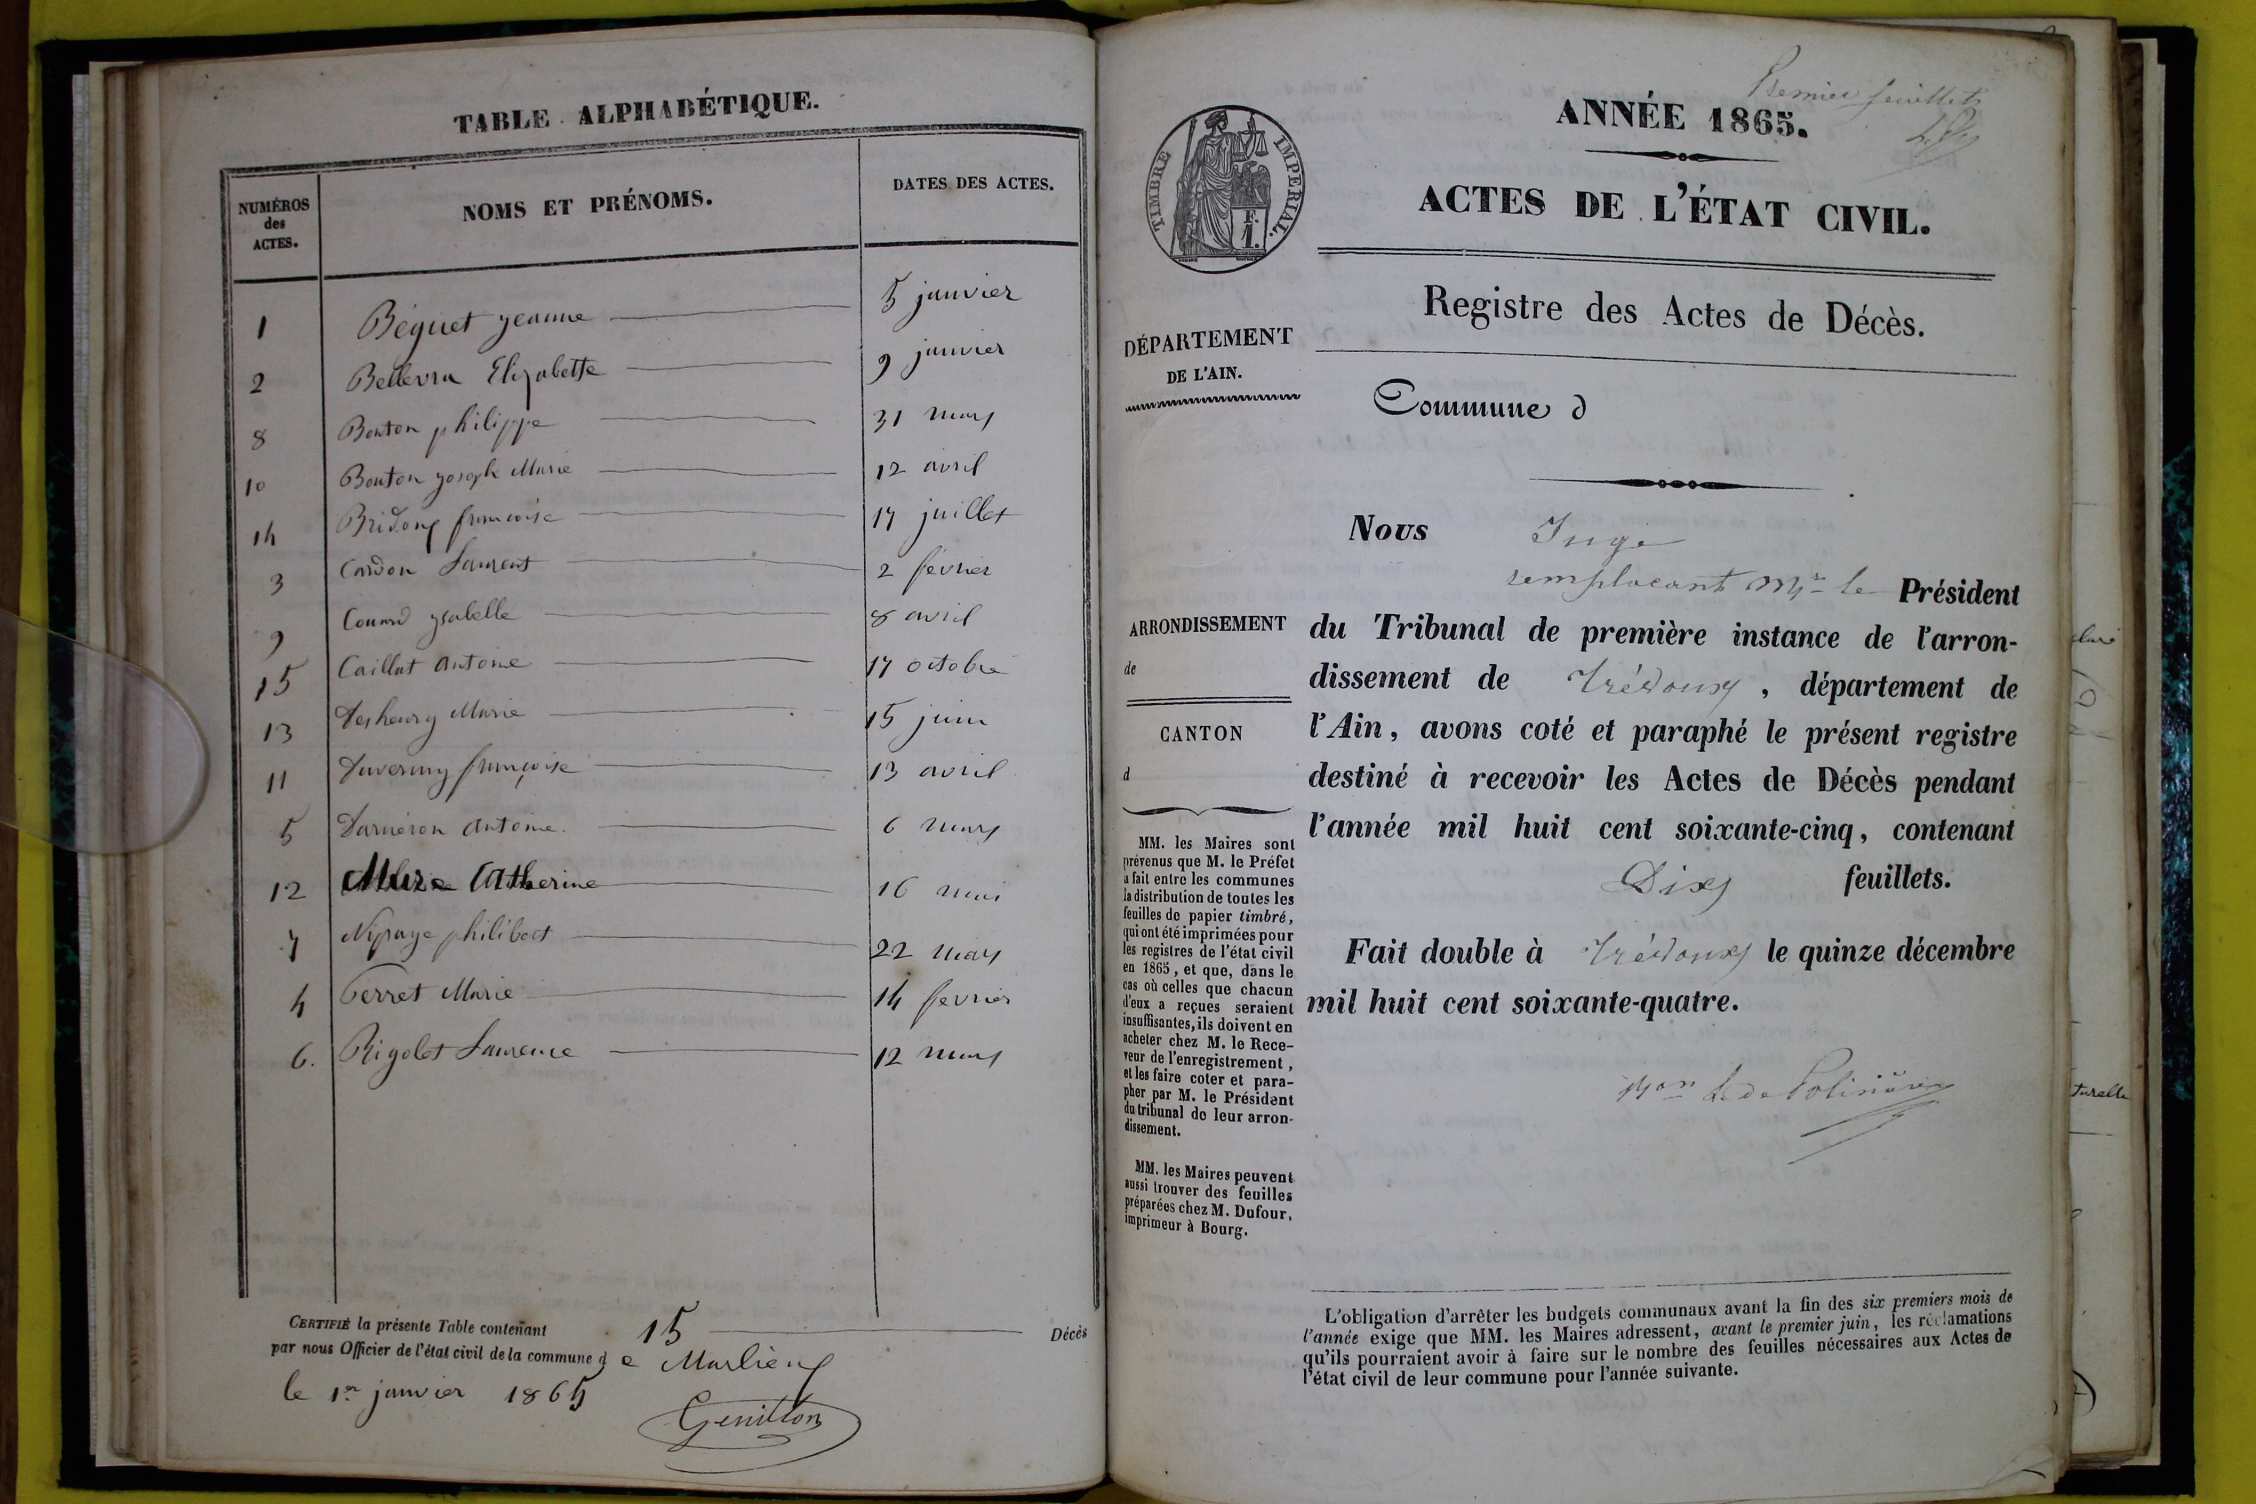 TABLE ALPHABÉTIQUE.
NUMÉROS des ACTES.
NOMS ET PRÉNOMS.
DATES DES ACTES.
1 Béguet jeanne 5 janvier
2 Bellevra Elizabette 9 janvier
8 Bouton philippe 31 mars
10 Bouton joseph Marie 12 avril
14 francoise 17 juillet
3 Cardon Laurent 2 février
9 Couard ysabelle 8 avril
15 Caillat antoine 17 octobre
13 Marie 15 juin
11 françoise 13 avril
5 antoine. 6 mars
12 Mure Catherine 16 mai
7 philibert 22 mars
4 Perret Marie 14 fevrier
6. Rigolet Laurence 12 mars
CERTIFIÉ la présente Table contenant 15 Décès
par nous Officier de l'état civil de la commune de Marlieux
le 1er janvier 1865
Genillon
Premier feuillet
ANNÉE 1865.
TIMBRE IMPERIAL.
F.
1.
ACTES DE L'ÉTAT CIVIL.
Registre des Actes de Décès.
DÉPARTEMENT
DE L'AIN.
Commune d
ARRONDISSEMENT
de
CANTON
d
MM. les Maires sont
prévenus que M. le Préfet
a fait entre les communes
la distribution de toutes les
feuilles de papier timbré,
qui ont été imprimées pour
les registres de l'état civil
en 1865, et que, dans le
cas où celles que chacun
d'eux a reçues seraient
insuffisantes, ils doivent en
acheter chez M. le Rece-
veur de l'enregistrement,
et les faire coter et para-
pher par M. le Président
du tribunal de leur arron-
dissement.
MM. les Maires peuvent
aussi trouver des feuilles
préparées chez M. Dufour,
imprimeur à Bourg.
Nous Juge
remplacant Mr le Président
du Tribunal de première instance de l'arron-
dissement de Trévoux, département de
l'Ain, avons coté et paraphé le présent registre
destiné à recevoir les Actes de Décès pendant
l'année mil huit cent soixante-cinq, contenant
Dix feuillets.
Fait double à Trévoux le quinze décembre
mil huit cent soixante-quatre.
L'obligation d'arrêter les budgets communaux avant la fin des six premiers mois de
l'année exige que MM. les Maires adressent, avant le premier juin, les réclamations
qu'ils pourraient avoir à faire sur le nombre des feuilles nécessaires aux Actes de
l'état civil de leur commune pour l'année suivante.